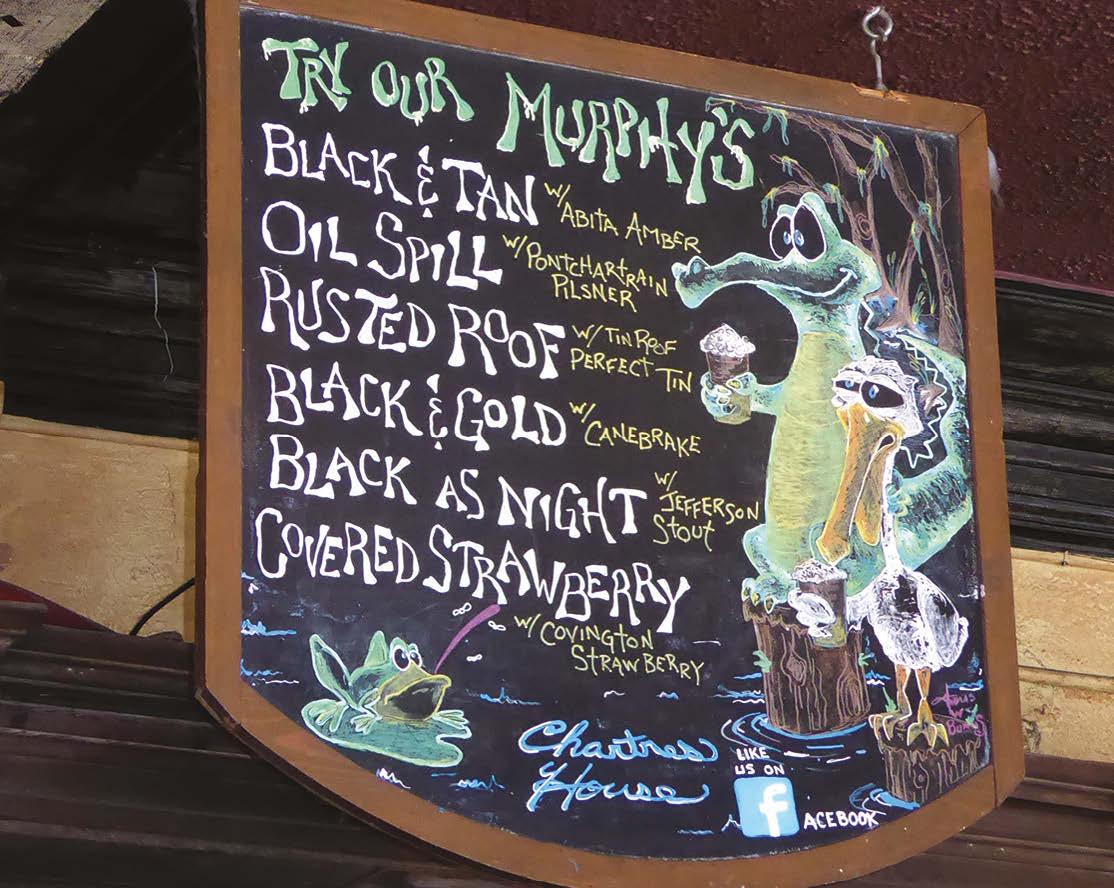 TRY OUR MURPHY'S
BLACK & TAN w/ ABITA AMBER
OIL SPILL w/ PONTCHARTRAIN
PILSNER
RUSTED ROOF w/ TIN ROOF
PERFECT TIN
BLACK & GOLD w/ CANEBRAKE
BLACK AS NIGHT w/
JEFFERSON
Stout
COVERED STRAWBERRY
w/ COVINGTON
STRAWBERRY
Chartres
House
LIKE
US ON
f ACEBOOK